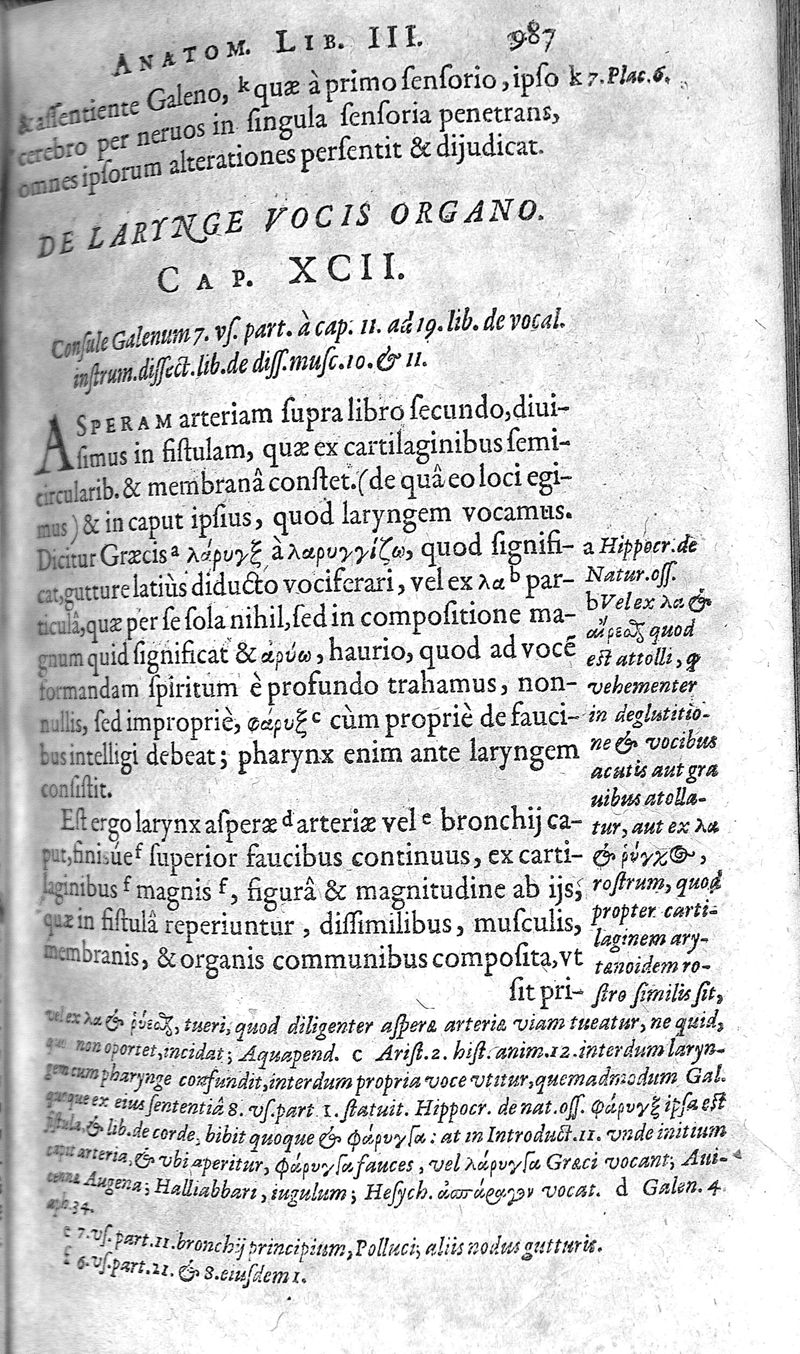 ANATOM. LIB. III. 987
& assentiente Galeno, k quæ à primo sensorio, ipso
cerebro per neruos in singula sensoria penetrans,
omnes ipsorum alterationes persentit & dijudicat.
k 7. Plac. 6.
DE LARYNGE VOCIS ORGANO.
CAP. XCII.
Consule Galenum 7. vs. part. à cap. 11. ad 19. lib. de vocal.
instrum. dissect. lib. de diss. musc. 10. & 11.
ASPERAM arteriam supra libro secundo, diui-
simus in fistulam, quæ ex cartilaginibus semi-
circularib. & membranâ constet. (de quâ eo loci egi-
mus) & in caput ipsius, quod laryngem vocamus.
Dicitur Græcis a λάρυγξ à λαρυγγίζω, quod signifi-
cat, gutture latiùs diducto vociferari, vel ex λα b par-
ticulâ, quæ per se sola nihil, sed in compositione ma-
gnum quid significat & αρύω, haurio, quod ad vocē
formandam spiritum è profundo trahamus, non-
nullis, sed impropriè, φάρυξ c cùm propriè de fauci-
bus intelligi debeat; pharynx enim ante laryngem
consistit.
Est ergo larynx asperæ d arteriæ vel e bronchij ca-
put, finisúe f superior faucibus continuus, ex carti-
laginibus f magnis f, figurâ & magnitudine ab ijs,
quæ in fistulâ reperiuntur, dissimilibus, musculis,
membranis, & organis communibus composita, vt
sit pri-
a Hippocr. de
Natur. oss.
b Vel ex λα &
quod
est attolli, q
vehementer
in deglutitio-
ne & vocibus
acutis aut gra
uibus atolla-
tur, aut ex λα
& ῥύγχος,
rostrum, quod
propter carti-
laginem ary-
tænoidem ro-
stro similis sit,
vel ex λα & tueri, quod diligenter asperæ arteriæ viam tueatur, ne quid,
quod non oportet, incidat; Aquapend. c Arist. 2. hist. anim. 12. interdum laryn-
gem cum pharynge confundit, interdum propria voce vtitur, quemadmodum Gal.
quoque ex eius sententiâ 8. vs. part 1. statuit. Hippocr. de nat. oss. φάρυγξ ipsa est
fistula, & lib. de corde, bibit quoque & φάρυγξα: at in Introduct. 11. vnde initium
capit arteria, & vbi aperitur, φάρυγξα fauces, vel λάρυγξα Græci vocant; Aui-
cenna Augena; Halliabbari, iugulum; Hesych. vocat. d Galen. 4.
aph. 34.
e 7. vs. part. 11. bronchij principium, Polluci; aliis nodus gutturis.
f 6. vs. part. 21. & 8. eiusdem 1.